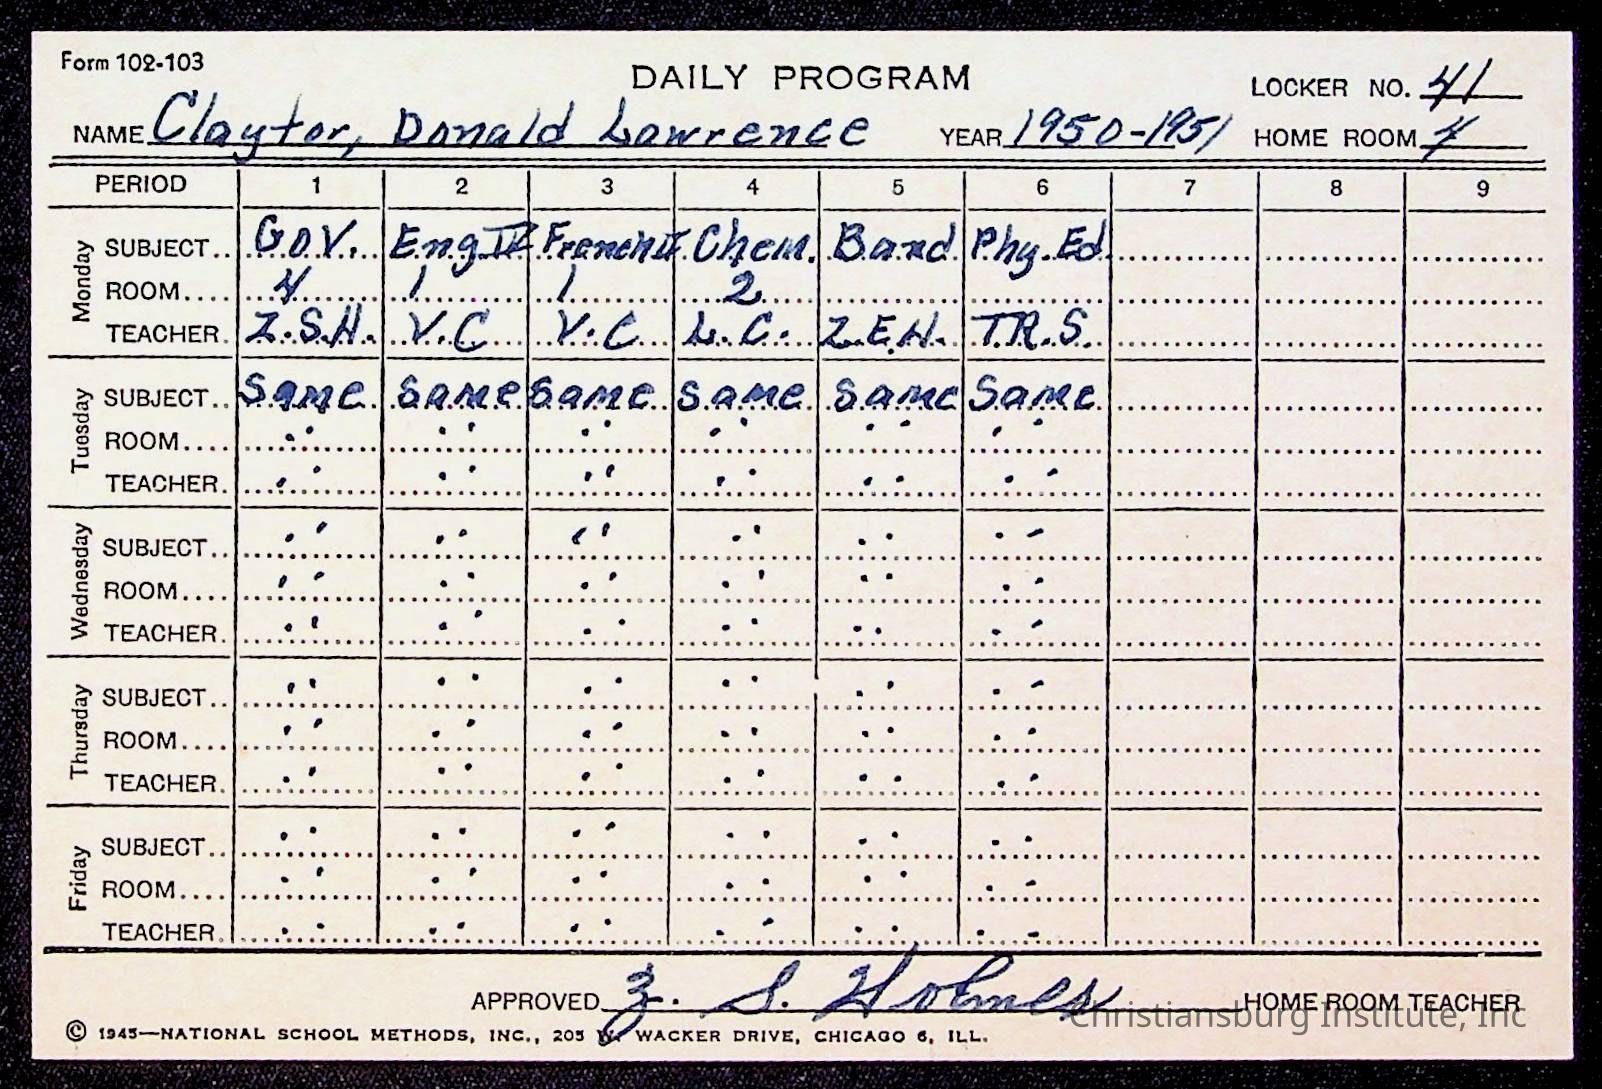 Form 102-103
DAILY PROGRAM
LOCKER NO. 41
NAME Claytor, Donald Lawrence YEAR 1950-1951 HOME ROOM 4
PERIOD 1 2 3 4 5 6 7 8 9
Monday
SUBJECT.. Gov. Eng IV French II Chem. Band Phy. Ed
ROOM.... 4 1 1 2
TEACHER. Z.S.H. V.C V.C L.C. Z.E.H. T.R.S.
Tuesday
SUBJECT.. Same Same Same Same Same Same
ROOM.... " " " " " "
TEACHER. " " " " " "
Wednesday
SUBJECT.. " " " " " "
ROOM.... " " " " " "
TEACHER. " " " " " "
Thursday
SUBJECT.. " " " " " "
ROOM.... " " " " " "
TEACHER. " " " " " "
Friday
SUBJECT.. " " " " " "
ROOM.... " " " " " "
TEACHER. " " " " " "
APPROVED Z. S. Holmes HOME ROOM TEACHER
Christiansburg Institute, Inc
© 1945—NATIONAL SCHOOL METHODS, INC., 205 W. WACKER DRIVE, CHICAGO 6, ILL.